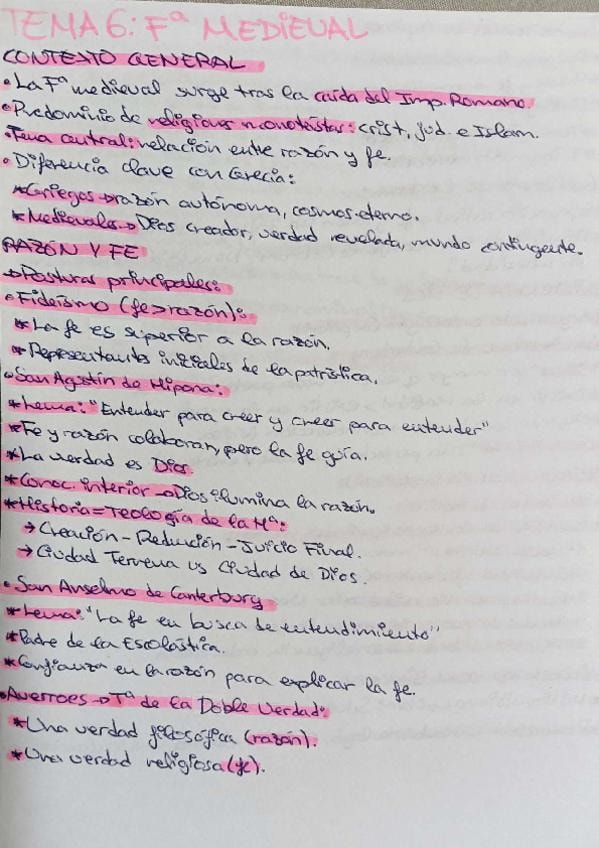 TEMA 6: Fª MEDIEVAL
CONTEXTO GENERAL
• La Fª medieval surge tras la caída del Imp. Romano.
• Predominio de religiones monoteístas: crist, jud. e Islam.
• Tema central: relación entre razón y fe.
• Diferencia clave con Grecia:
* Griegos → razón autónoma, cosmos eterno.
* Medievales → Dios creador, verdad revelada, mundo contingente.
RAZÓN Y FE
→ Posturas principales:
• Fideísmo (fe > razón):
* La fe es superior a la razón.
* Representantes iniciales de la patrística.
• San Agustín de Hipona:
* Lema: "Entender para creer y creer para entender"
* Fe y razón colaboran, pero la fe guía.
* La verdad es Dios.
* Conoc. interior → Dios ilumina la razón.
* Historia = Teología de la Hª:
→ Creación - Redención - Juicio Final.
→ Ciudad Terrena vs Ciudad de Dios
• San Anselmo de Canterbury
* Lema: "La fe en busca de entendimiento"
* Padre de la Escolástica.
* Confianza en la razón para explicar la fe.
• Averroes → Tª de la Doble Verdad:
* Una verdad filosófica (razón).
* Una verdad religiosa (fe).